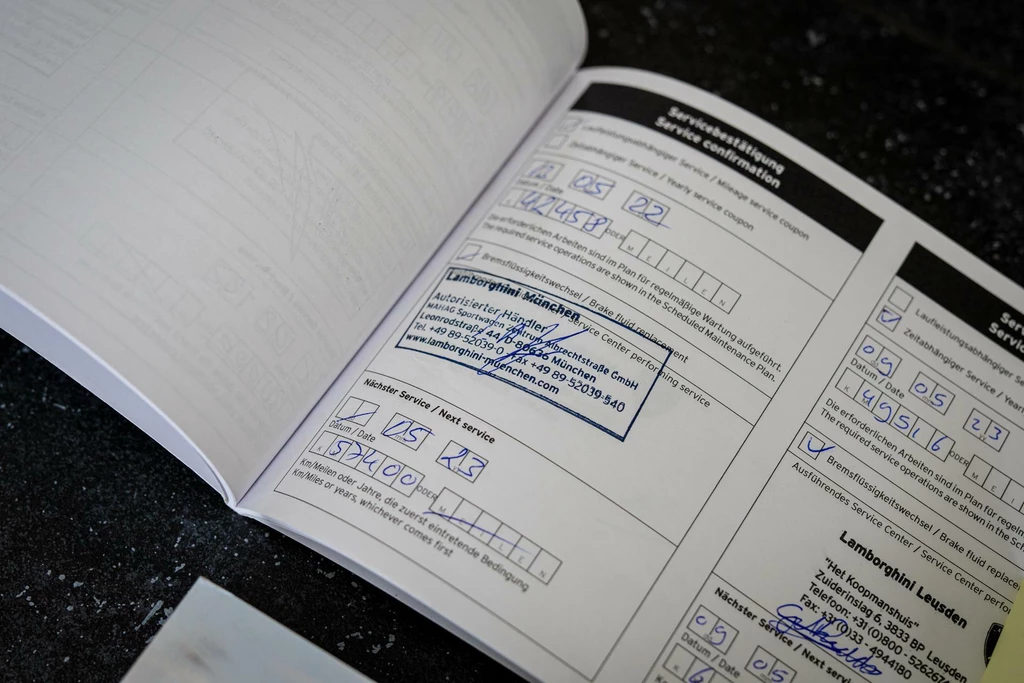 Servicebestätigung
Service confirmation
Laufleistungsabhängiger Service / Mileage service coupon
Zeitabhängiger Service / Yearly service coupon
12 05 22
Datum / Date
K 42458 ODER MEILEN
Die erforderlichen Arbeiten sind im Plan für regelmäßige Wartung aufgeführt.
The required service operations are shown in the Scheduled Maintenance Plan.
Bremsflüssigkeitswechsel / Brake fluid replacement
Service Center performing service
Lamborghini München
Autorisierter Händler
MAHAG Sportwagen Zentrum Albrechtstraße GmbH
Leonrodstraße 44/ D-80636 München
Tel. +49 89-52039-0 Fax +49 89-52039-540
www.lamborghini-muenchen.com
Nächster Service / Next service
05 23
Datum / Date
K 57400 ODER MEILEN
Km/Meilen oder Jahre, die zuerst eintretende Bedingung
Km/Miles or years, whichever comes first
Laufleistungsabhängiger
Zeitabhängiger Service /
09 05 23
Datum / Date
K 49516 ODER MEI
Die erforderlichen Arbeiten sind im Plan für
The required service operations are shown in the
Bremsflüssigkeitswechsel / Brake fluid
Ausführendes Service Center / Service Center
Lamborghini Leusden
"Het Koopmanshuis"
Zuiderinslag 6, 3833 BP Leusden
Nächster Service /
09 05
Datum / Date
K